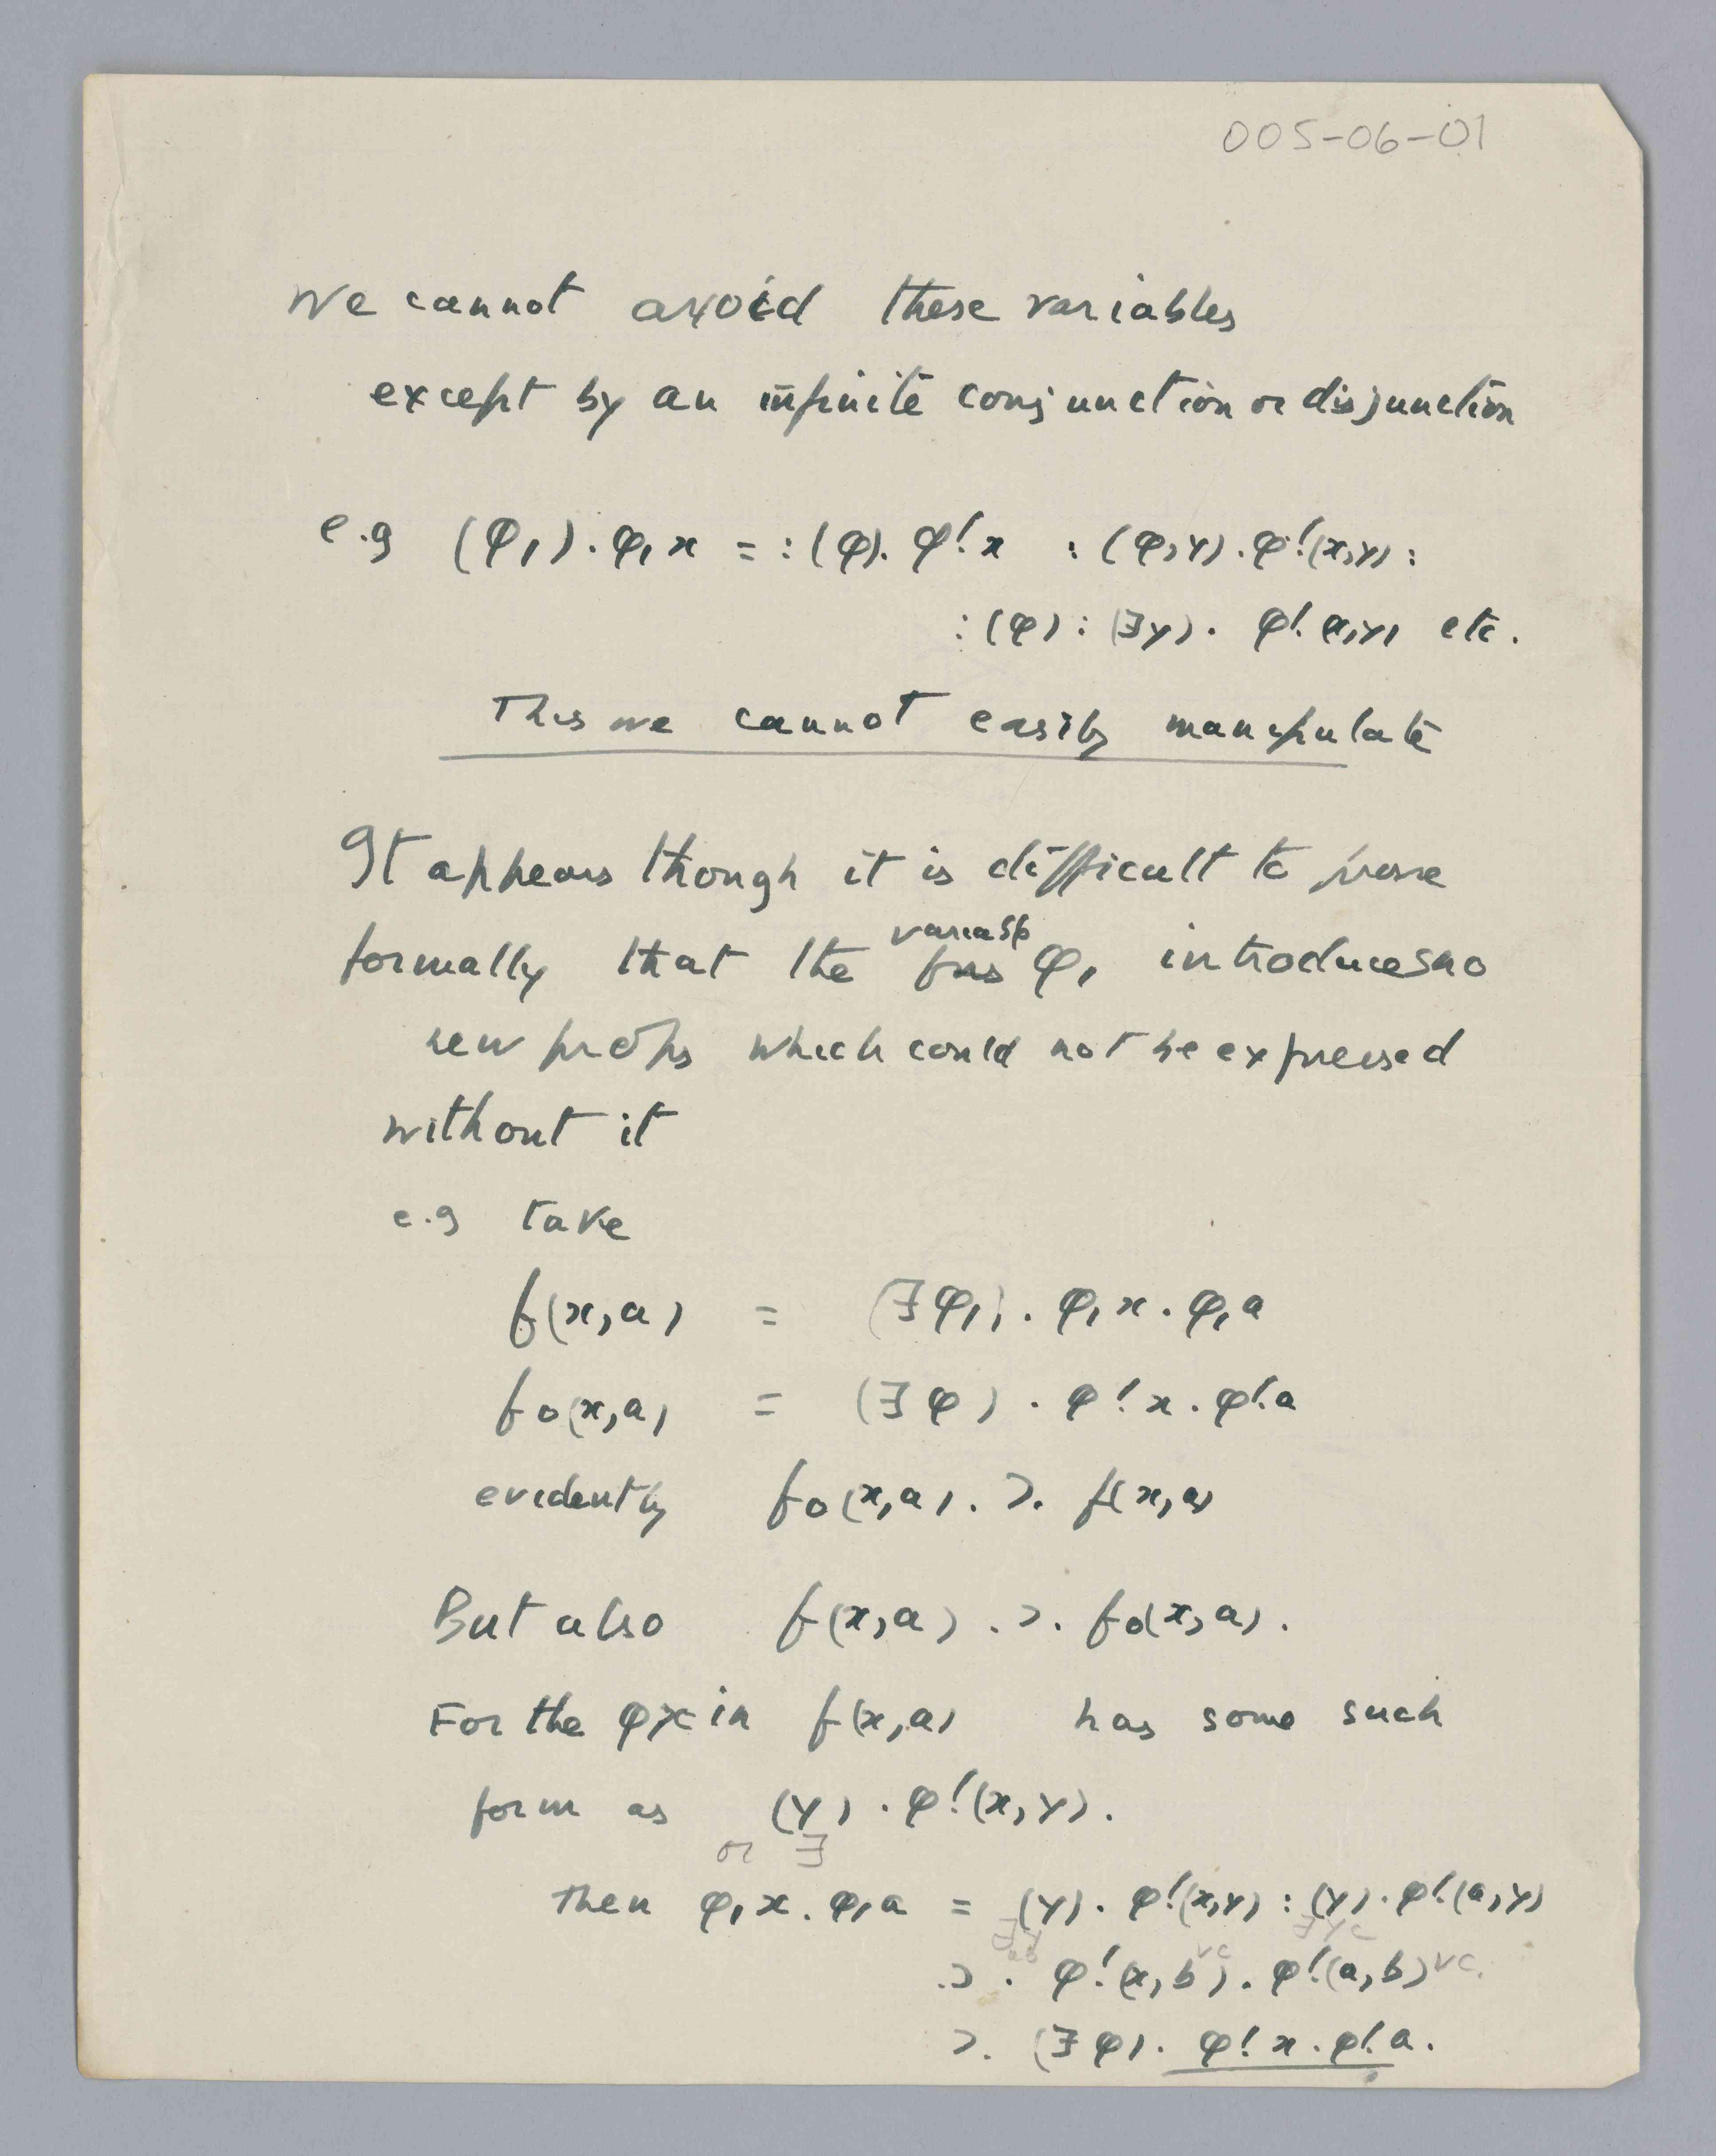 005-06-01
We cannot avoid these variables
except by an infinite conjunction or disjunction
e.g (φ₁). φ₁x = :(φ). φ!x : (φ,y). φ!(x,y) :
: (φ) : (∃y). φ!(x,y) etc.
This we cannot easily manipulate
It appears though it is difficult to prove
variable
formally that the fns φ₁ introduces no
new props which could not be expressed
without it
e.g take
f(x,a) = (∃φ₁). φ₁x . φ₁a
f₀(x,a) = (∃φ). φ!x . φ!a
evidently f₀(x,a). ⊃. f(x,a)
But also f(x,a). ⊃. f₀(x,a).
For the φ₁x in f(x,a) has some such
form as (y). φ!(x,y).
or ∃
Then φ₁x . φ₁a = (y). φ!(x,y) : (y). φ!(a,y)
.⊃. φ!(x,b) . φ!(a,b) vc
⊃. (∃φ). φ!x . φ!a.